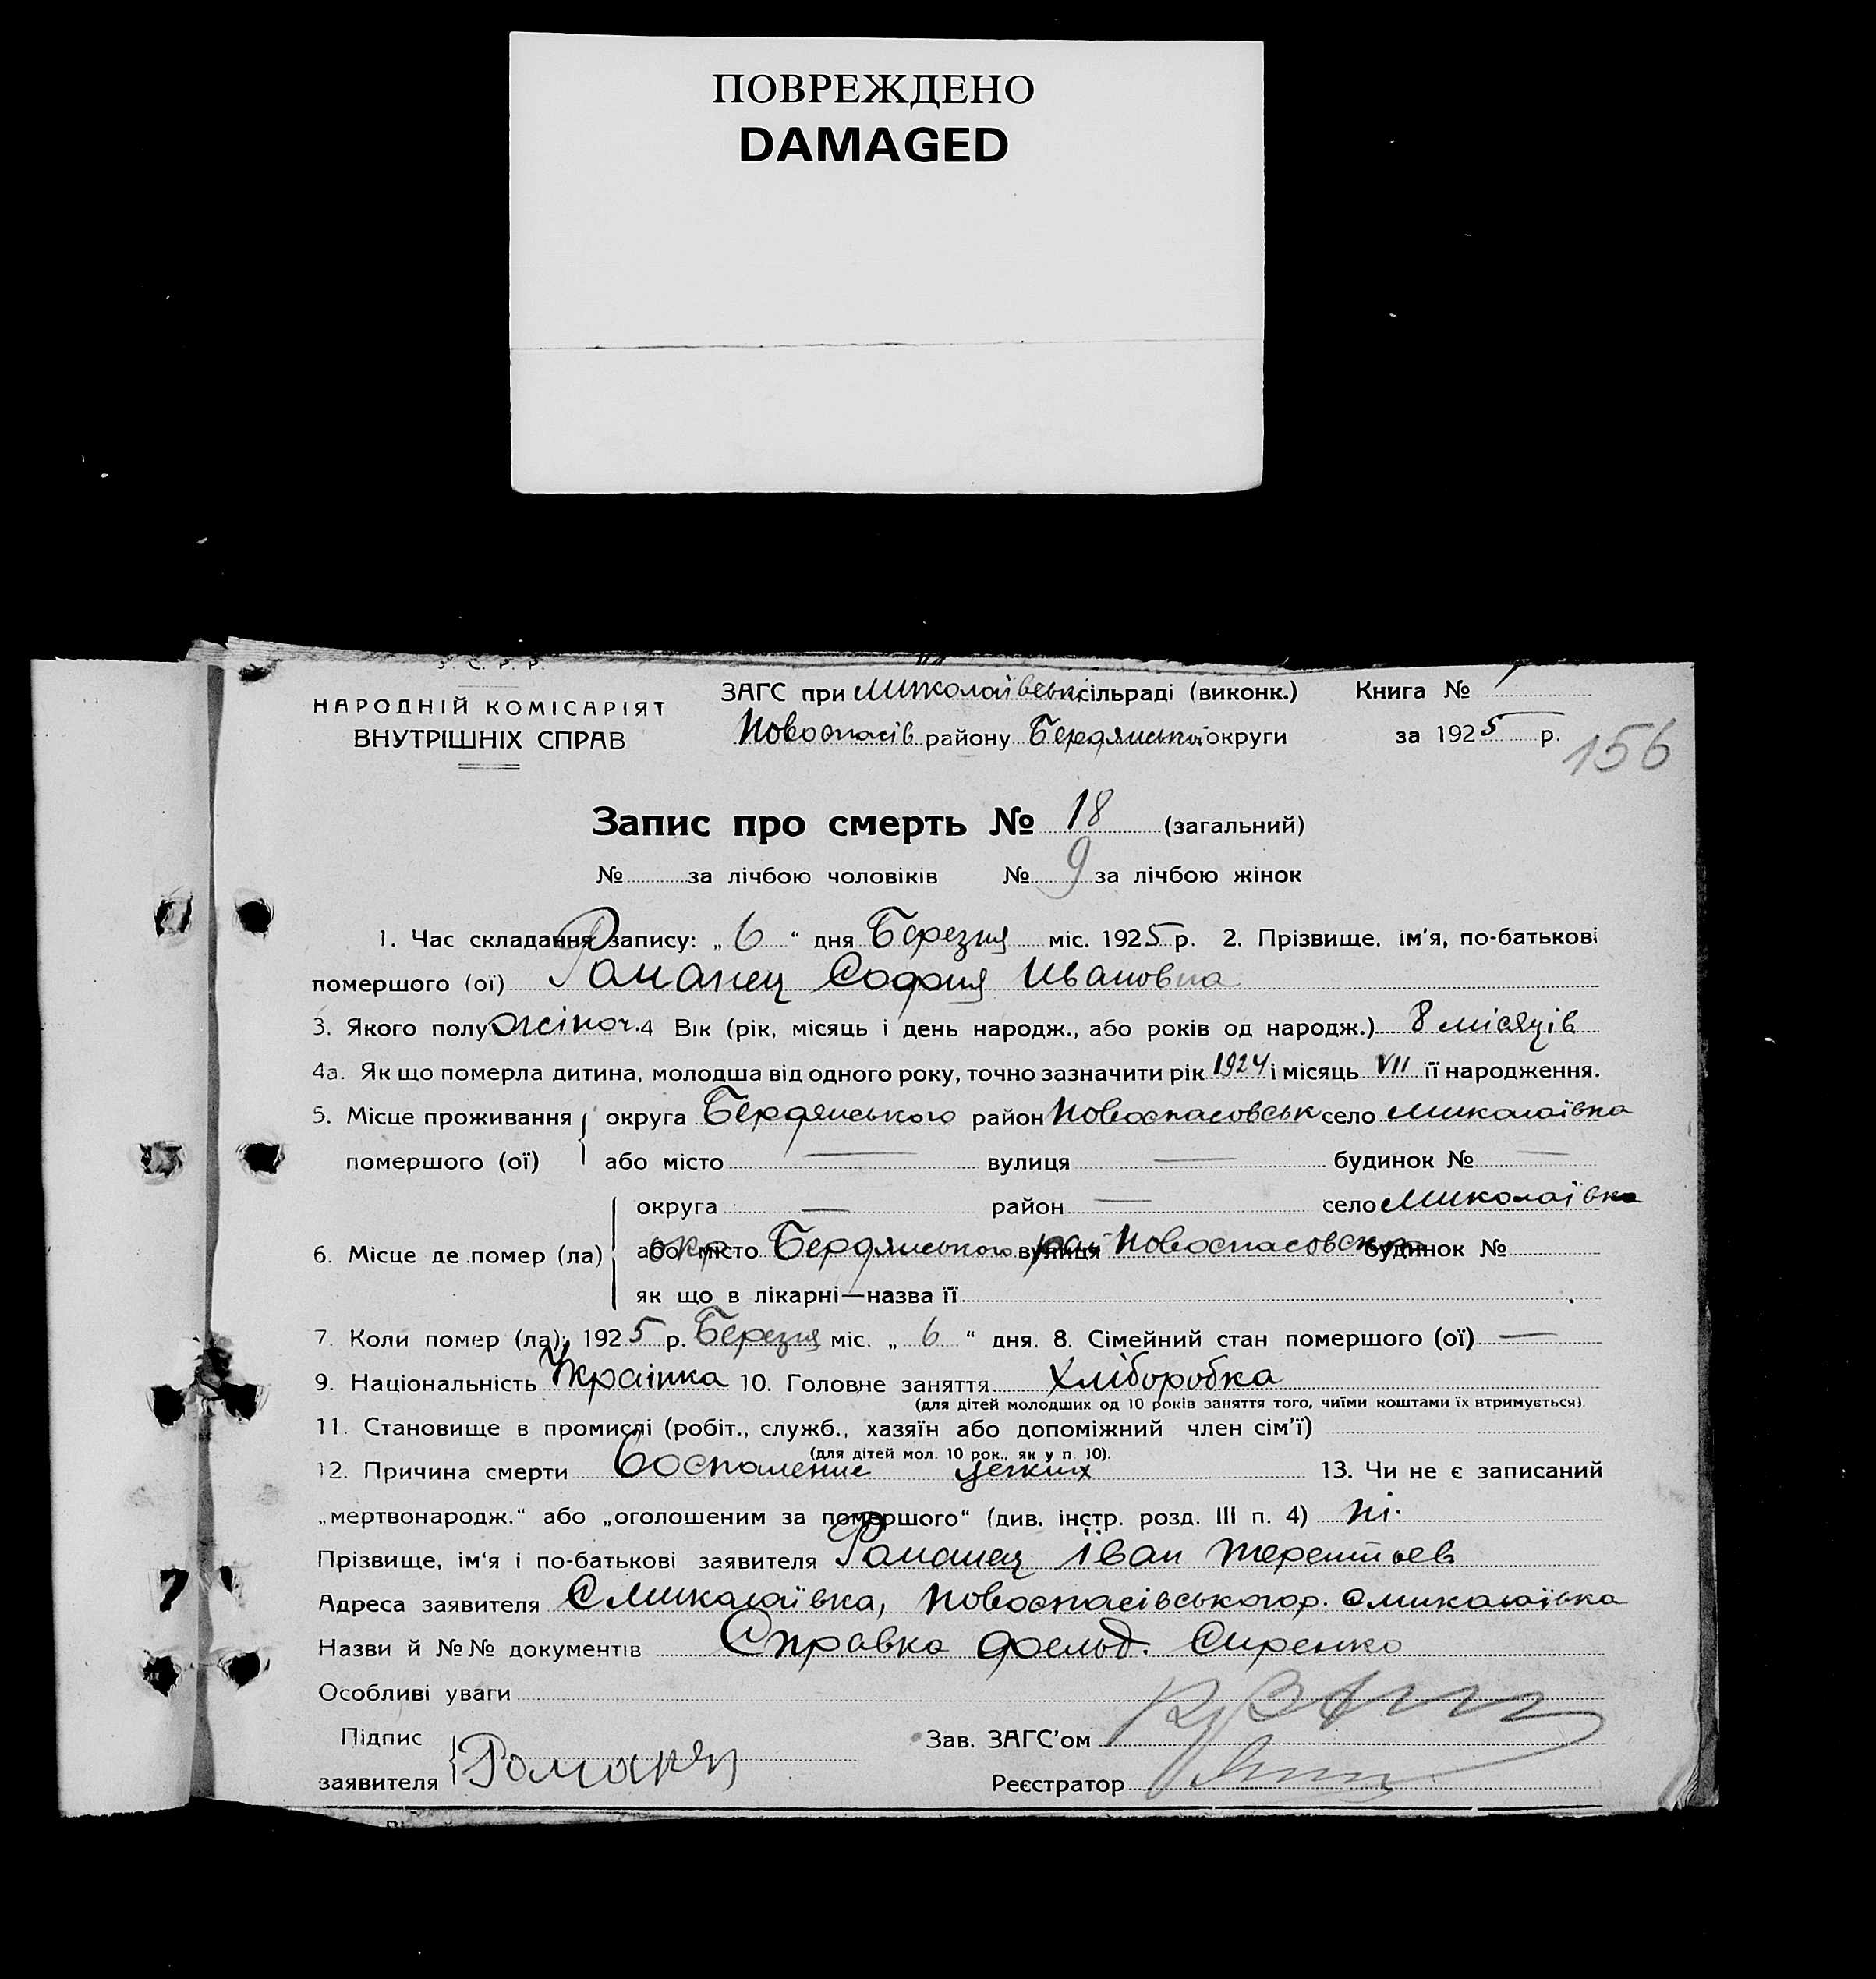 ПОВРЕЖДЕНО
DAMAGED
У. С. Р. Р.
НАРОДНІЙ КОМІСАРІЯТ
ВНУТРІШНІХ СПРАВ
ЗАГС при Миколаївськ. сільраді (виконк.) Книга №
Новоспасів району Бердянської округи за 1925 р.
156
Запис про смерть № 18 (загальний)
№ за лічбою чоловіків № 9 за лічбою жінок
1. Час складання запису: „ 6 “ дня Березня міс. 1925 р. 2. Прізвище, ім'я, по-батькові
помершого (ої) Романец София Ивановна
3. Якого полу жіноч. 4 Вік (рік, місяць і день народж., або років од народж.) 8 місяців
4а. Як що померла дитина, молодша від одного року, точно зазначити рік 1924 і місяць VII її народження.
5. Місце проживання округа Бердянського район Новоспасовськ село Миколаївка
помершого (ої) або місто — вулиця — будинок № —
округа — район — село Миколаївка
6. Місце де помер (ла) або місто окр Бердянського вулиця рай Новоспасовськ будинок №
як що в лікарні—назва її
7. Коли помер (ла): 1925 р. Березня міс. „ 6 “ дня. 8. Сімейний стан помершого (ої) —
9. Національність Украінка 10. Головне заняття Хліборобка
(для дітей молодших од 10 років заняття того, чиїми коштами їх втримується).
11. Становище в промислі (робіт., служб., хазяїн або допоміжний член сім'ї)
(для дітей мол. 10 рок., як у п. 10).
12. Причина смерти Воспаление легких 13. Чи не є записаний
„мертвонародж.“ або „оголошеним за помершого“ (див. інстр. розд. III п. 4) ні.
Прізвище, ім'я і по-батькові заявителя Романец Їван Терентьев
Адреса заявителя С Миколаївка, Новоспасівського р. с Миколаївка
Назви й №№ документів Справка фельд. Сиренко
Особливі уваги
Підпис
заявителя Романец
Зав. ЗАГС'ом
Реєстратор